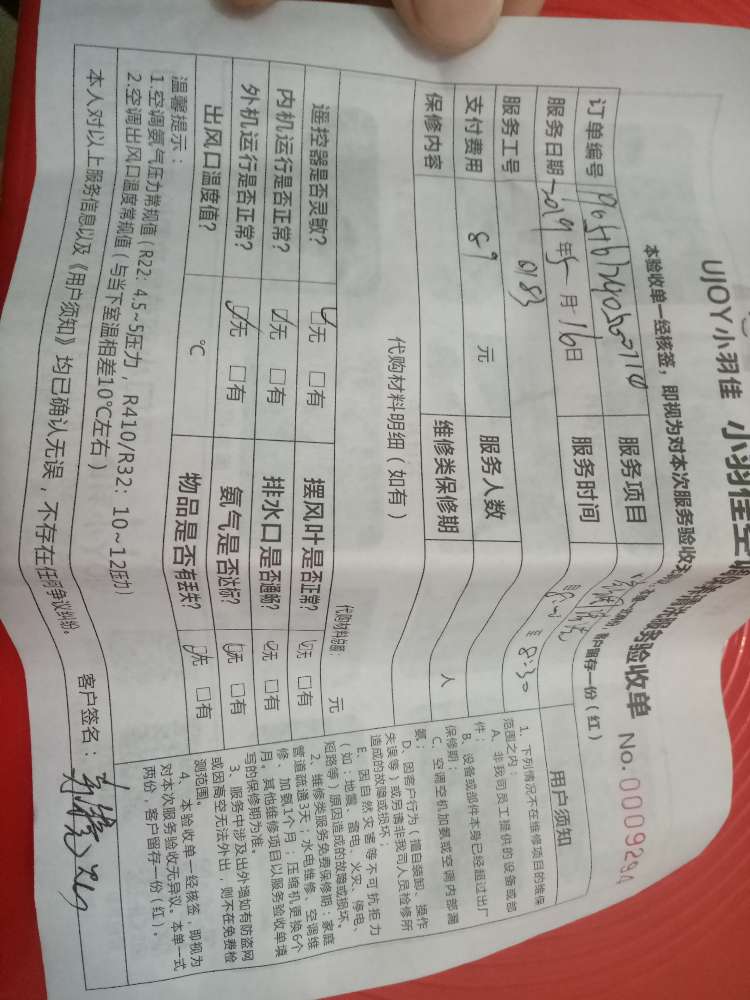 UJOY小羽佳 小羽佳空
服务验收单 No.0009294
本验收单一经核签，即视为对本次服务验收
客户留存一份（红）
订单编号 服务项目
服务日期 2019年5月16日 服务时间 8:30
服务工号 0183
支付费用 89 元 服务人数 人
保修内容 维修类保修期
代购材料明细（如有）
代购材料总额： 元
遥控器是否灵敏？ ☑无 □有 摆风叶是否正常？ ☑无 □有
内机运行是否正常？ ☑无 □有 排水口是否通畅？ ☑无 □有
外机运行是否正常？ ☑无 □有 氨气是否达标？ ☑无 □有
出风口温度值？ ℃ 物品是否有丢失？ ☑无 □有
温馨提示：
1.空调氨气压力常规值（R22：4.5~5压力，R410/R32：10~12压力）
2.空调出风口温度常规值（与当下室温相差10℃左右）
本人对以上服务信息以及《用户须知》均已确认无误，不存在任何争议纠纷。
客户签名：
用户须知
1、下列情况不在维修项目的维保
范围之内：
A、非我司员工提供的设备或部
件；
B、设备或部件本身已经超过出厂
保修期；
C、空调空机加氨或空调内部漏
氨；
D、因客户行为（擅自装卸、操作
失误等）或另请非我司人员检修所
造成的故障或损坏；
E、因自然灾害等不可抗拒力
（如：地震、雷电、火灾、停电、
短路等）原因造成的故障或损坏。
2、维修类服务免费保修期：家庭
管道疏通3天；水电维修、空调维
修、加氨1个月；压缩机更换6个
月。其他维修项目以服务验收单填
写的保修期为准。
3、服务中涉及出外墙如有防盗网
或因高空无法外出，则不在免费检
测范围。
4、本验收单一经核签，即视为
对本次服务验收无异议。本单一式
两份，客户留存一份（红）。